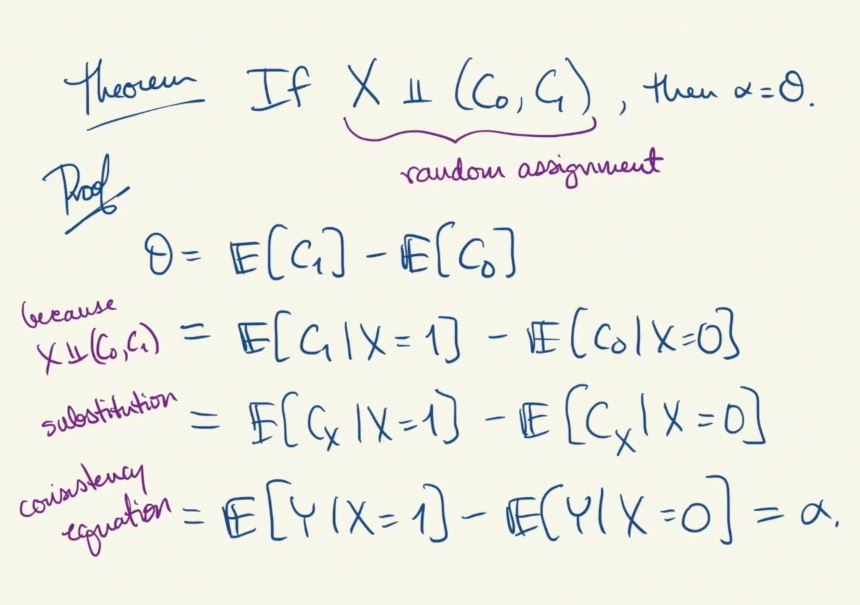 Theorem If X ⫫ (C₀, C₁), then α = θ.
random assignment
Proof
θ = 𝔼[C₁] − 𝔼[C₀]
because X ⫫ (C₀, C₁) = 𝔼[C₁ | X = 1] − 𝔼[C₀ | X = 0]
substitution = 𝔼[C_X | X = 1] − 𝔼[C_X | X = 0]
consistency equation = 𝔼[Y | X = 1] − 𝔼[Y | X = 0] = α.